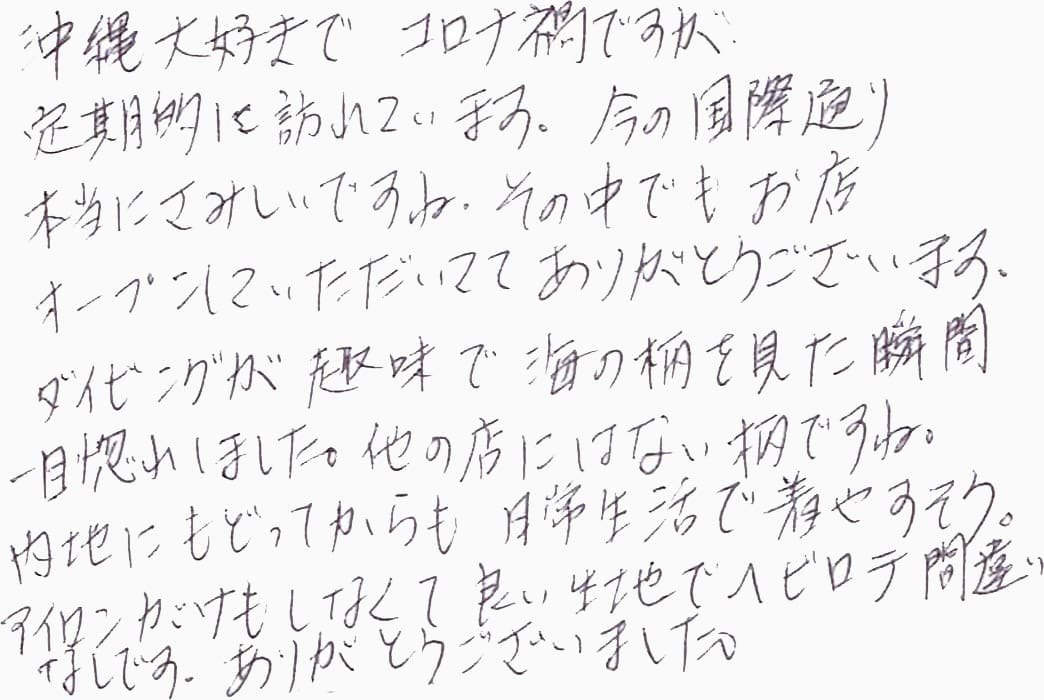 沖縄大好きで コロナ禍ですが
定期的に訪れています。 今の国際通り
本当にさみしいですね. その中でもお店
オープンしていただいてて ありがとうございます.
ダイビングが 趣味で 海の柄を見た瞬間
一目惚れしました。他の店にはない柄ですね。
内地にもどってからも 日常生活で着やすそう。
アイロンがけもしなくて 良い生地でヘビロテ間違い
なしです. ありがとうございました。